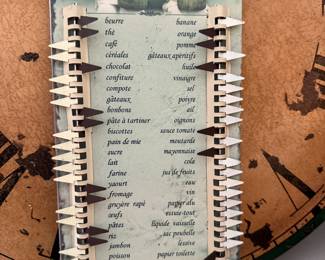 beurre
thé
café
céréales
chocolat
confiture
compote
gâteaux
bonbons
pâte à tartiner
biscottes
pain de mie
sucre
lait
farine
yaourt
fromage
gruyère rapé
œufs
pâtes
riz
jambon
poisson
banane
orange
pomme
gâteaux apéritifs
huile
vinaigre
sel
poivre
ail
oignons
sauce tomate
moutarde
mayonnaise
cola
jus de fruits
eau
vin
papier alu
essuie-tout
liquide vaisselle
sac poubelle
lessive
papier toilette